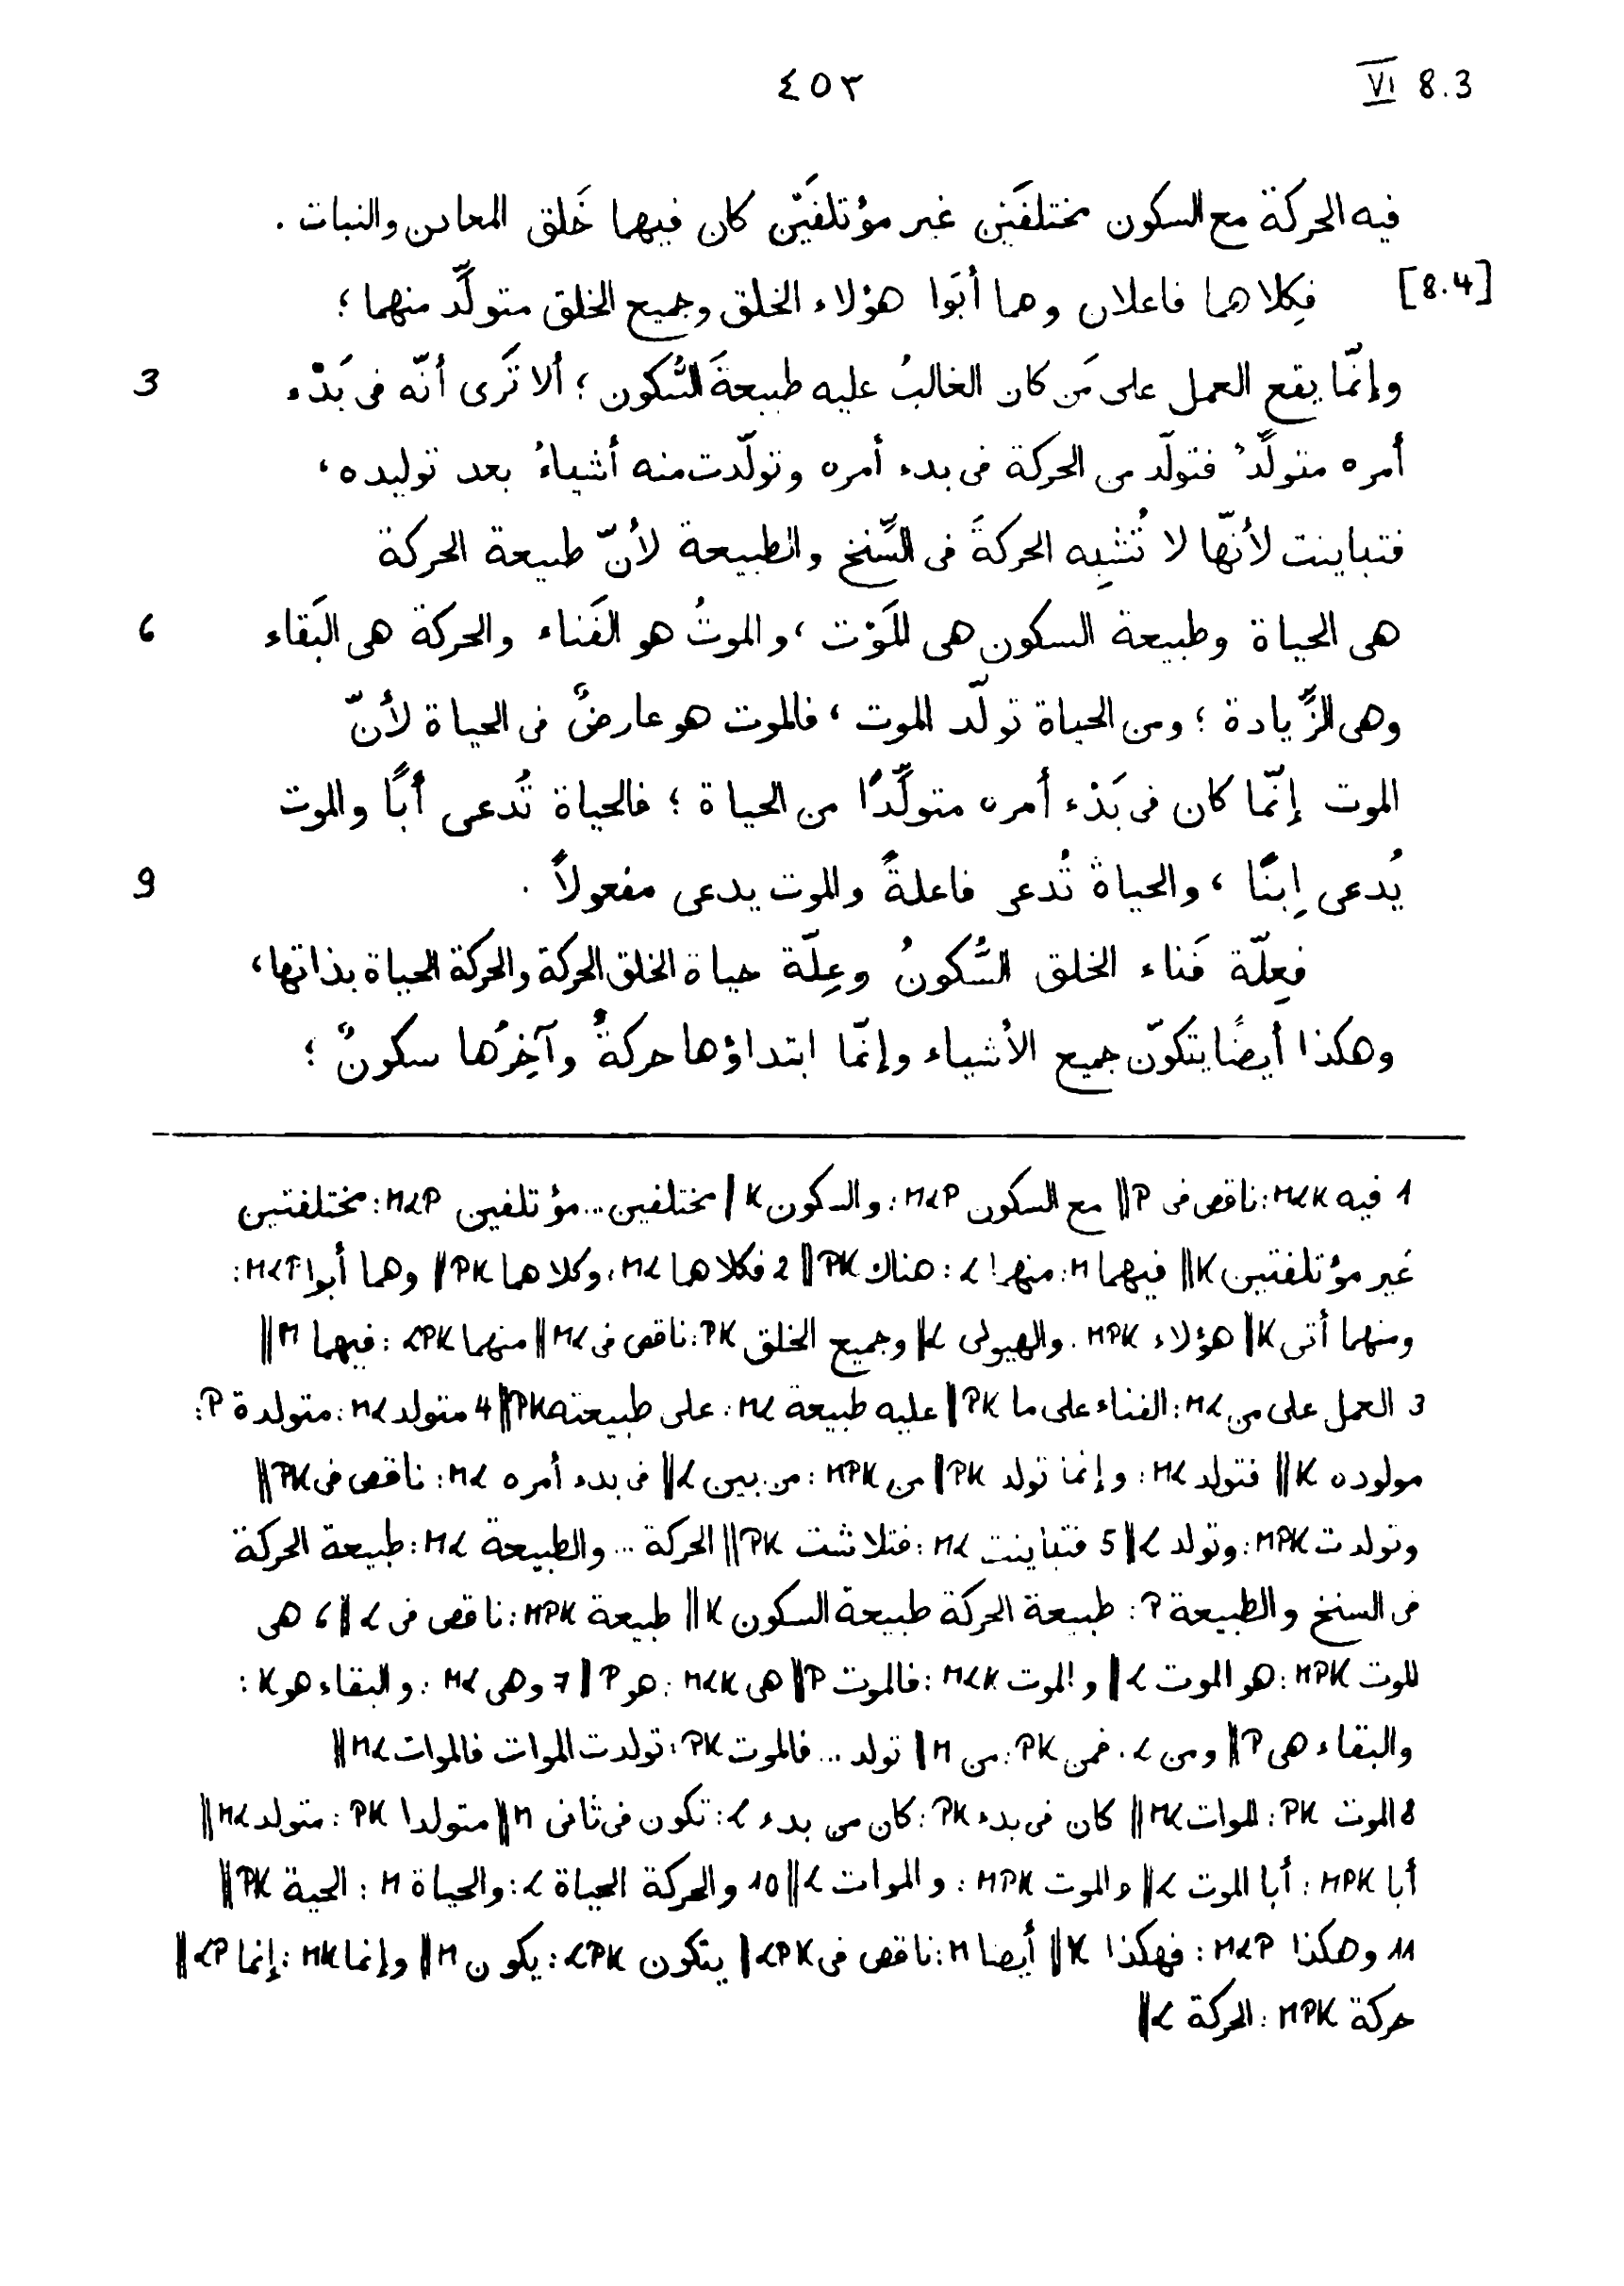 ٤٥٣ VI 8.3
فيه الحركة مع السكون مختلفَيْن غير مؤتلفَيْن كان فيهما خَلق المعادن والنبات .
[8.4] فكِلاهما فاعلان وهما أبَوا هؤلاء الخلق وجميع الخلق متولِّد منهما ؛
3 وإنّما يقع العمل على مَن كان الغالبُ عليه طبيعةَ السُّكون ؛ ألا تَرى أنّه فى بَدْء
أمره متولِّدٌ فتولّد من الحركة فى بدء أمره وتولّدت منه أشياءُ بعد توليده ،
فتباينت لأنّها لا تُشبِه الحركةَ فى السِّنخ والطبيعة لأنّ طبيعة الحركة
6 هى الحياة وطبيعة السكون هى المَوْت ، والموتُ هو الفَناء والحركة هى البَقاء
وهى الزِّيادة ؛ ومن الحياة تولّد الموت ، فالموت هو عارضٌ فى الحياة لأنّ
الموت إنّما كان فى بَدْء أمره متولِّدًا من الحياة ؛ فالحياة تُدعى أبًا والموت
9 يُدعى إبنًا ، والحياةُ تُدعى فاعلةً والموت يدعى مفعولاً .
فعِلّة فَناء الخلق السُّكونُ وعِلّة حياة الخلق الحركة والحركة الحياة بذاتها ،
وهكذا أيضًا يتكوّن جميع الأشياء وإنّما ابتداؤها حركةٌ وآخِرُها سكونٌ ؛
1 فيه MLK: ناقص فى P || مع السكون MLP: والسكون K | مختلفين ... مؤتلفين MLP: مختلفتين
غير مؤتلفتين K || فيهما M: منهما L: هناك PK || 2 فكلاهما ML: وكلاهما PK || وهما أبوا MLP:
ومنهما أتى K || هؤلاء MPK: والهيولى L || وجميع الخلق PK: ناقص فى ML || منهما LPK: فيهما M ||
3 العمل على من ML: الفناء على ما PK | عليه طبيعة ML: على طبيعته PK || 4 متولد ML: متولدة P:
مولوده K || فتولد ML: وإنما تولد PK | من MPK: من بين L || فى بدء أمره ML: ناقص فى PK ||
وتولدت MPK: وتولد L || 5 فتباينت ML: فتلاشت PK || الحركة ... والطبيعة ML: طبيعة الحركة
فى السنخ والطبيعة P: طبيعة الحركة طبيعة السكون K || طبيعة MPK: ناقص فى L || 6 هى
الموت MPK: هو الموت L || والموت MLK: فالموت P || هى MLK: هو P || 7 وهى ML: والبقاء هو K:
والبقاء هى P || ومن L: فمن PK: من M | تولد ... فالموت PK: تولدت الموات فالموات ML ||
8 الموت PK: الموات ML || كان فى بدء PK: كان من بدء L: تكون فى ثانى M || متولدا PK: متولد ML ||
أبا MPK: أبا الموت L || والموت MPK: والموات L || 10 والحركة الحياة L: والحياة M: الحية PK ||
11 وهكذا MLP: فهكذا K || أيضا M: ناقص فى LPK | يتكون LPK: يكون M || وإنما MK: إنما LP ||
حركة MPK: الحركة L ||